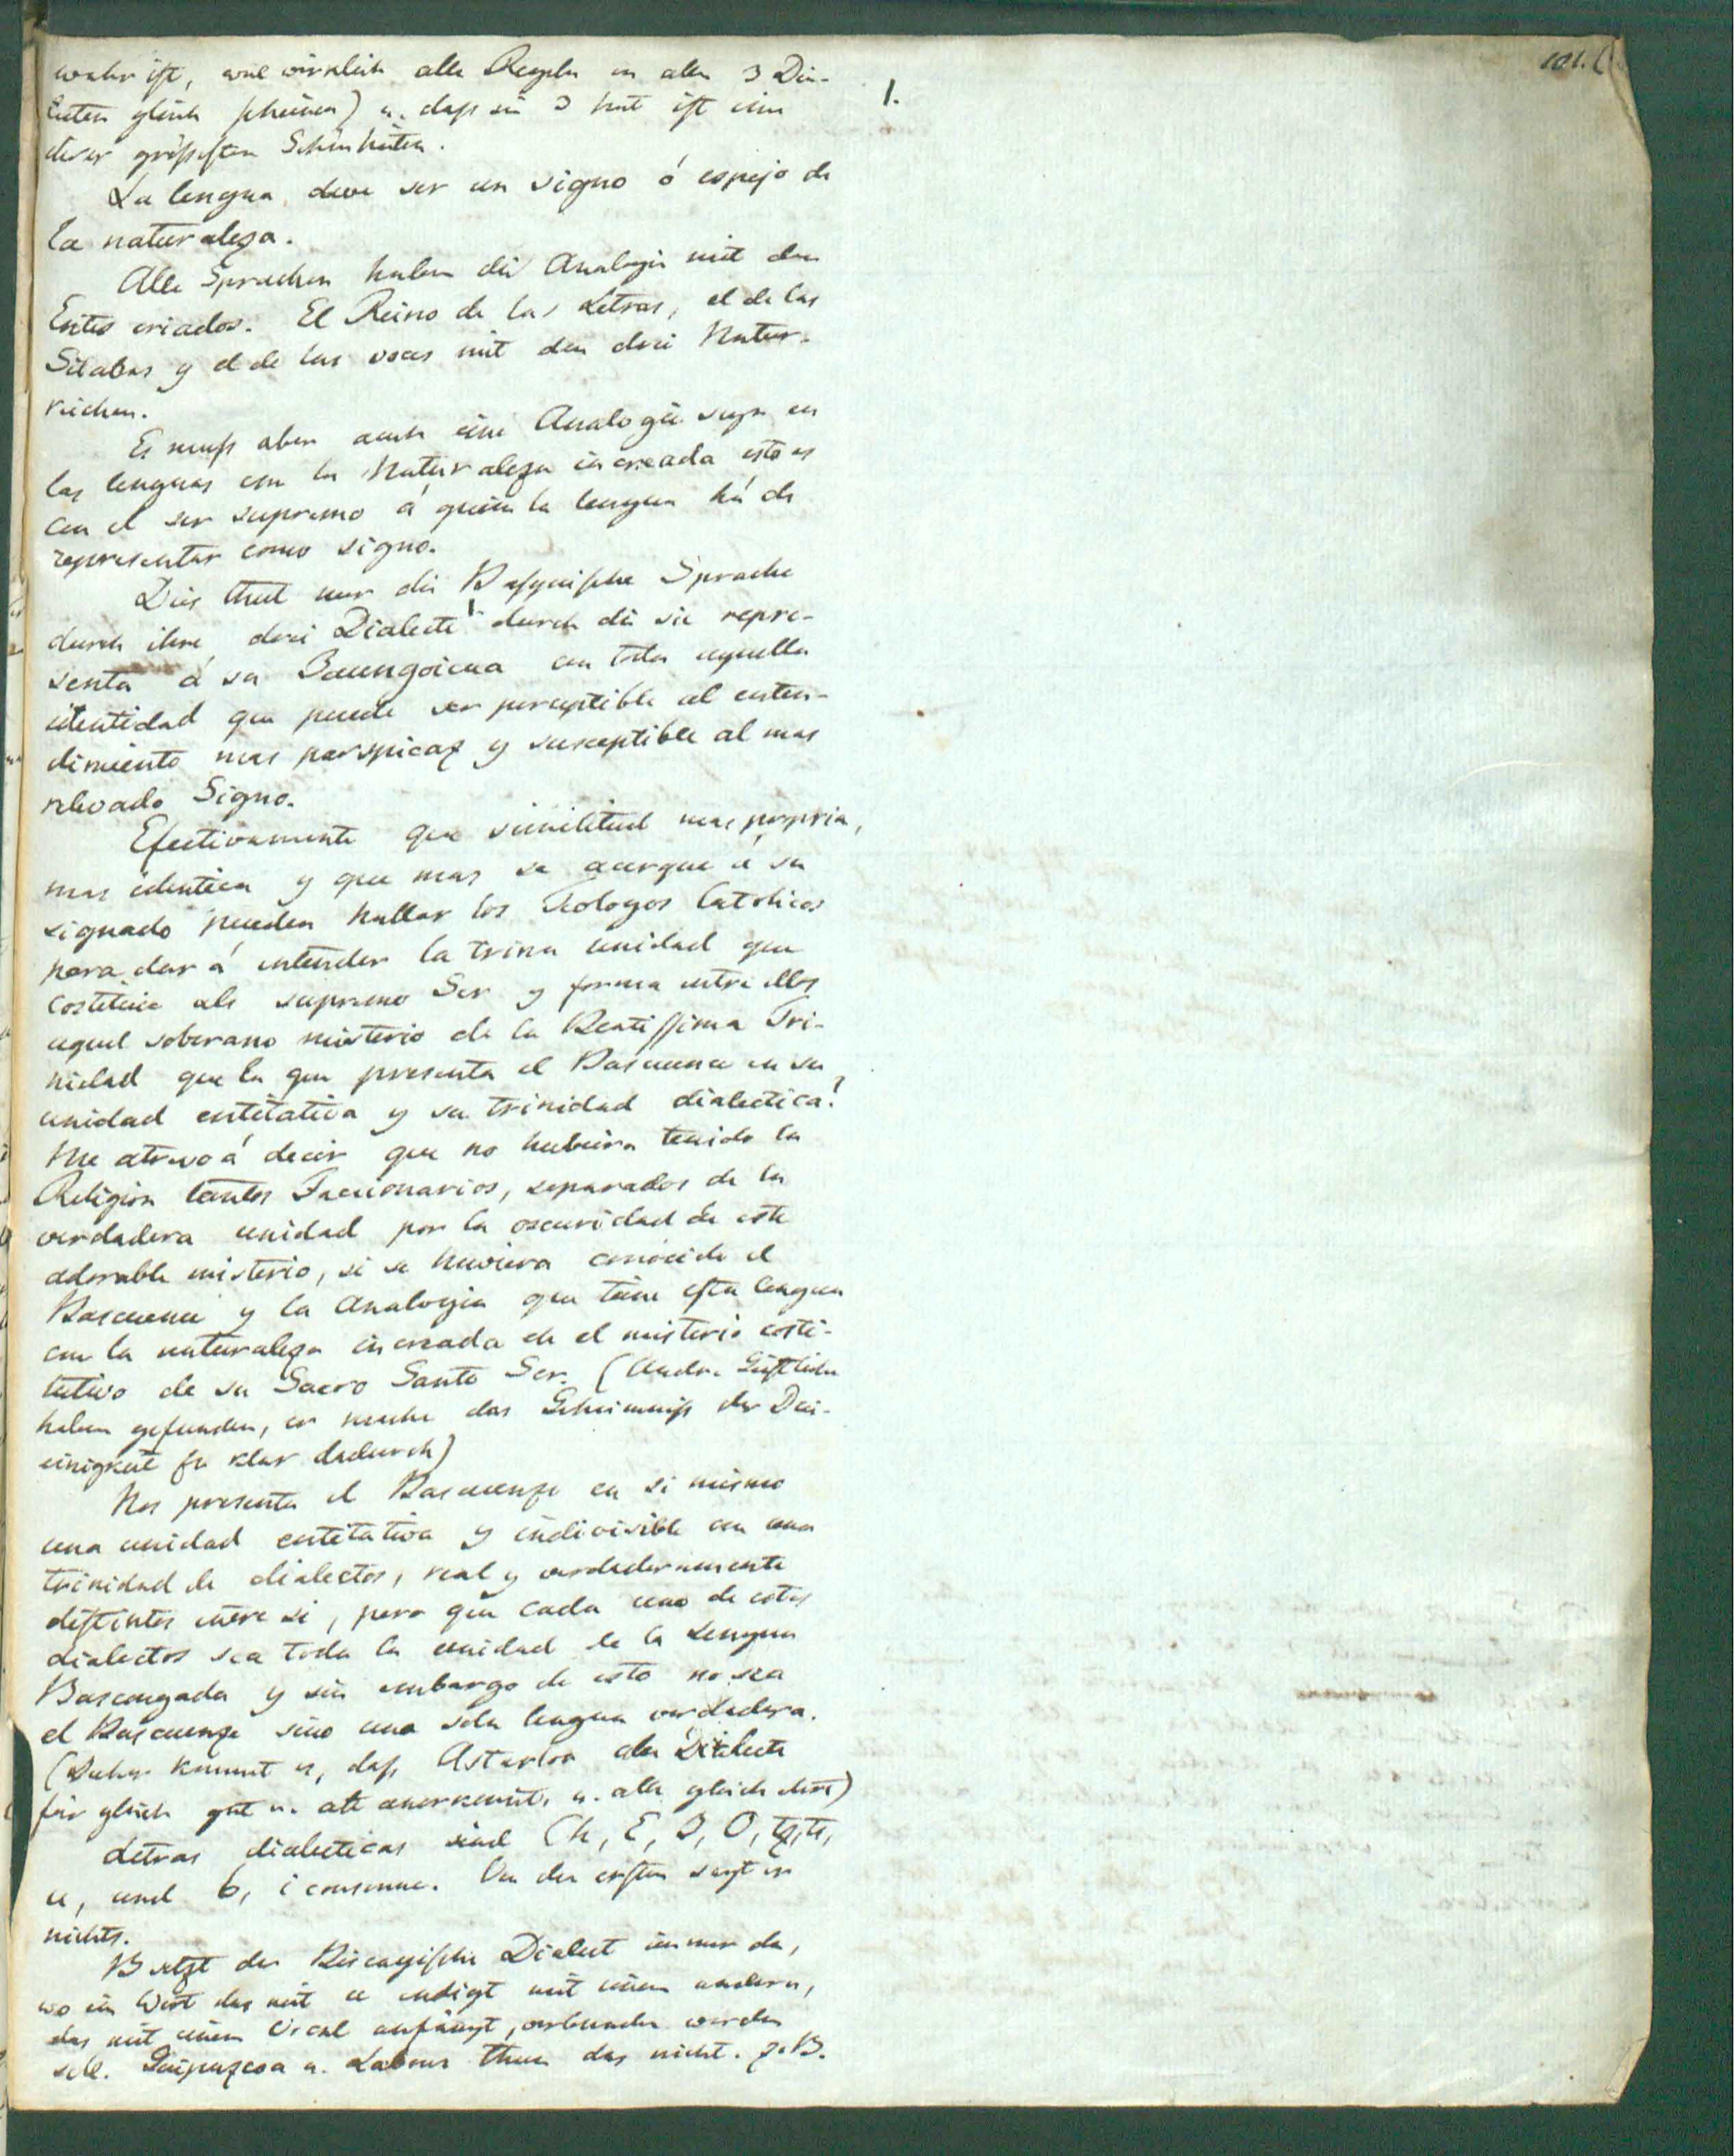 101.
1.
wahr ist, weil wirklich alle Regeln in allen 3 Dia-
lecten gleich scheinen) u. dass sie 3 hat ist eine
ihrer grössesten Schönheiten.
La lengua deve ser un signo ó espejo de
la naturaleza.
Alle Sprachen haben die Analogie mit den
Entes criados. El Reino de las Letras, el de las
Silabas y el de las voces mit den drei Natur-
reichen.
Es muss aber auch eine Analogie seyn en
las lenguas con la Naturaleza increada esto es
con el ser supremo á quien la lengua há de
representar como signo.
Dies thut nur die Basquische Sprache
durch ihre drei Dialecte 1. durch die sie repre-
senta á su Baungoicua con toda aquella
identidad que puede ser perceptible al enten-
dimiento mas perspicaz y susceptible al mas
relevado Signo.
Efectivamente que similitud mas propria,
mas identica y que mas se acerque á su
signado pueden hallar los Teologos Catolicos
para dar á entender la trina unidad que
costituie als supremo Ser y forma entre ellos
aquel soberano misterio de la Beatissima Tri-
nidad que la que presenta el Bascuence en su
unidad entitativa y su trinidad dialectica?
Me atrevo á decir que no hubiera tenido la
Religion tantos Faccionarios, separados de la
verdadera unidad por la oscuridad de este
adorable misterio, si se huviera conocido el
Bascuence y la Analogia que tiene esta lengua
con la naturaleza increada en el misterio costi-
tutivo de su Sacro Santo Ser. (Andre Geistliche
haben gefunden, er mache das Geheimniss der Drei-
einigkeit so klar dadurch)
Nos presenta el Bascuenze en si mismo
una unidad entitativa y indivisible con una
trinidad de dialectos, real y verdaderamente
distintos entre si, pero que cada uno de estos
dialectos sea toda la unidad de la Lengua
Bascongada y sin embargo de esto no sea
el Bascuenze sino una sola lengua verdadera.
(Daher kommt es, dass Astarloa alle Dialecte
für gleich gut u. alt anerkennt, u. alle gleich ehrt)
Letras dialecticas sind Ch, E, I, O, tz, ts,
u, und b, i consonne. Von den ersten sagt er
nichts.
B setzt der Biscayische Dialect immer da,
wo ein Wort das mit u endigt mit einem andern,
das mit einem Vocal anfängt, verbunden werden
soll. Guipuzcoa u. Labour thun das nicht. z. B.